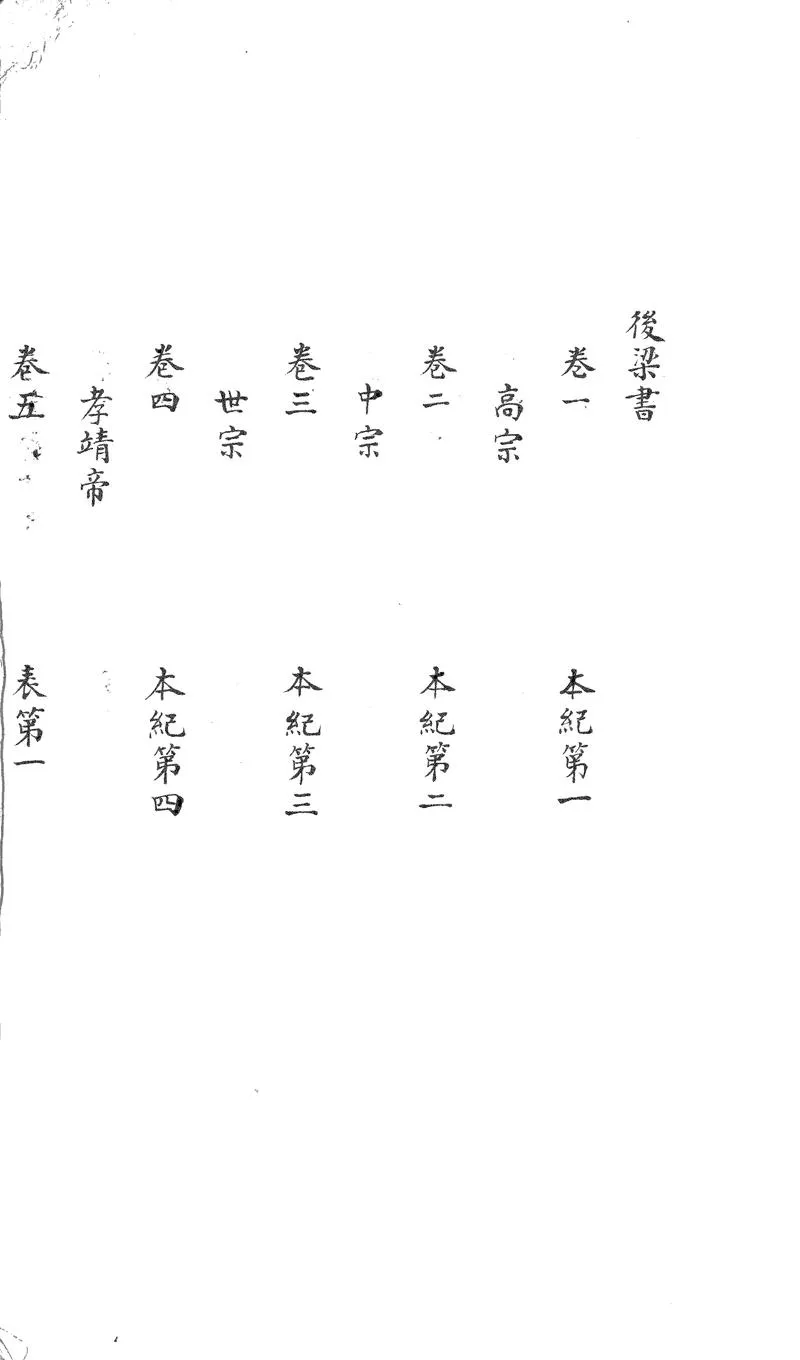 後梁書
卷一 本紀第一
高宗
卷二 本紀第二
中宗
卷三 本紀第三
世宗
卷四 本紀第四
孝靖帝
卷五 表第一